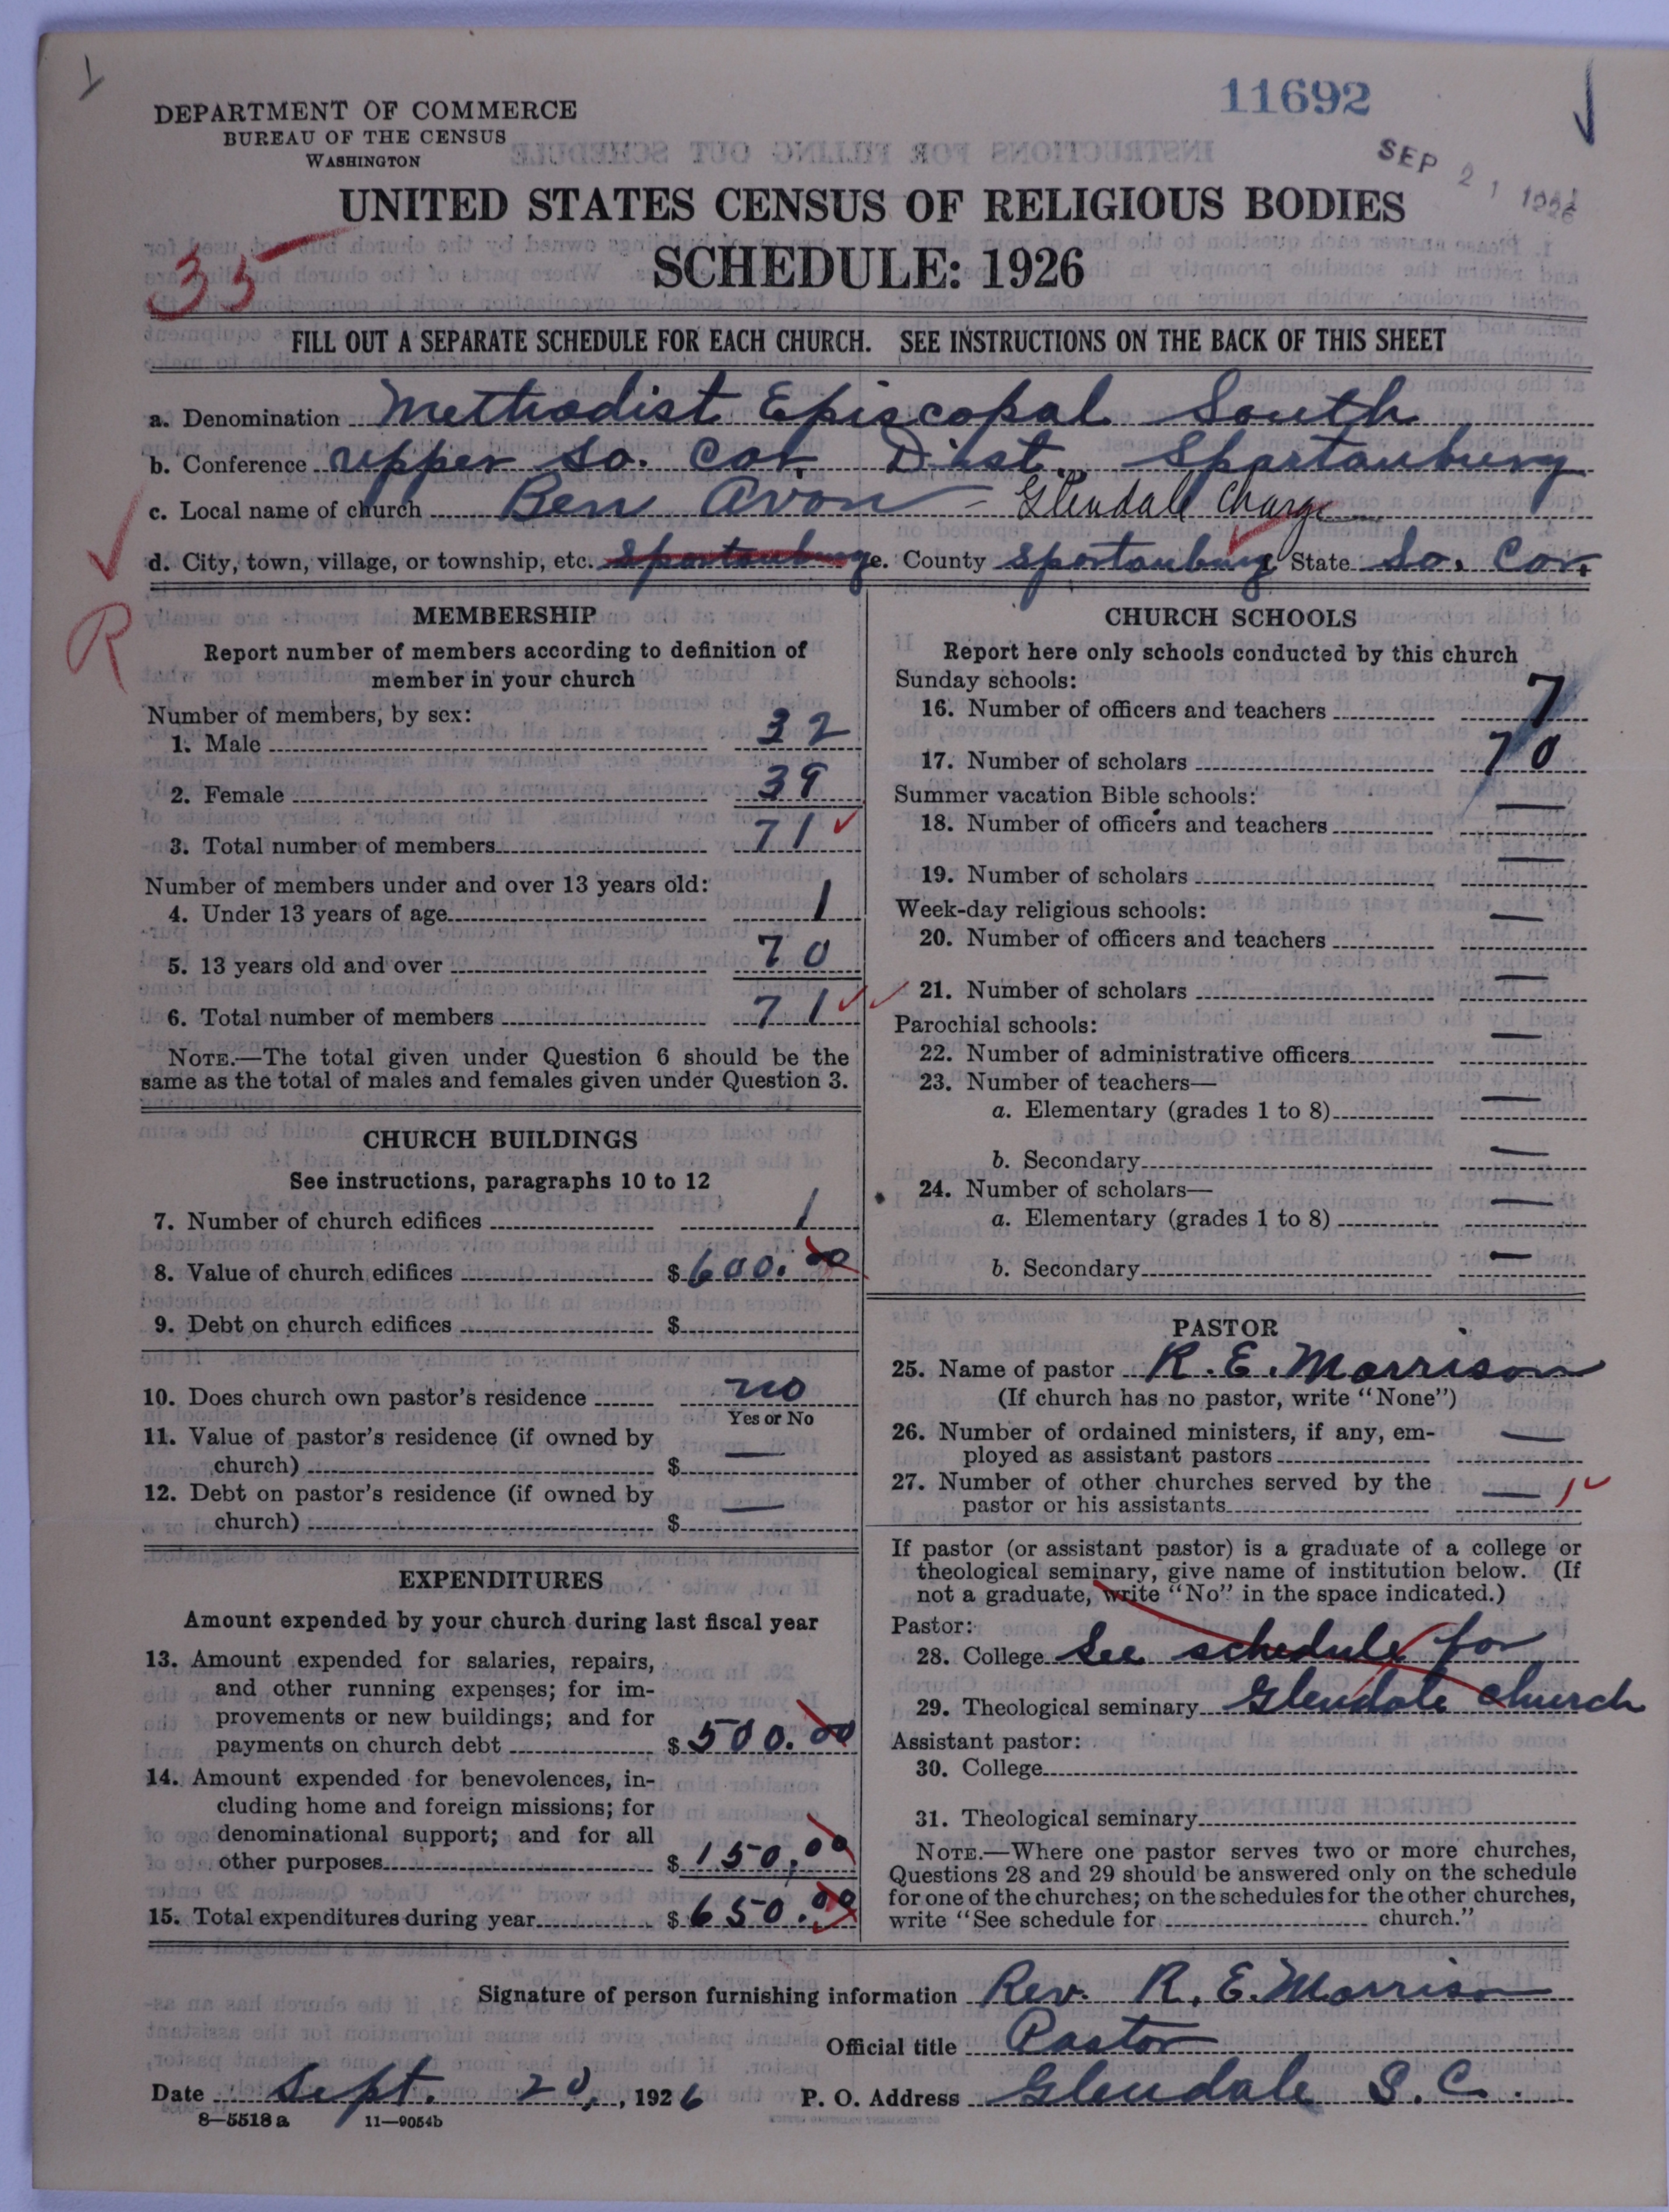 11692
SEP 21 1926
DEPARTMENT OF COMMERCE
BUREAU OF THE CENSUS
WASHINGTON
UNITED STATES CENSUS OF RELIGIOUS BODIES
SCHEDULE: 1926
35
FILL OUT A SEPARATE SCHEDULE FOR EACH CHURCH. SEE INSTRUCTIONS ON THE BACK OF THIS SHEET
a. Denomination Methodist Episcopal South
b. Conference upper So. Car. Dist. Spartanburg
c. Local name of church Ben Avon - Glendale Charge
d. City, town, village, or township, etc. Spartanburg e. County Spartanburg f. State So. Car.
R
MEMBERSHIP
Report number of members according to definition of
member in your church
Number of members, by sex:
1. Male 32
2. Female 39
3. Total number of members 71
Number of members under and over 13 years old:
4. Under 13 years of age 1
5. 13 years old and over 70
6. Total number of members 71
NOTE.—The total given under Question 6 should be the
same as the total of males and females given under Question 3.
CHURCH BUILDINGS
See instructions, paragraphs 10 to 12
7. Number of church edifices 1
8. Value of church edifices $600.00
9. Debt on church edifices $
10. Does church own pastor's residence no
Yes or No
11. Value of pastor's residence (if owned by
church) $ —
12. Debt on pastor's residence (if owned by
church) $ —
EXPENDITURES
Amount expended by your church during last fiscal year
13. Amount expended for salaries, repairs,
and other running expenses; for im-
provements or new buildings; and for
payments on church debt $500.00
14. Amount expended for benevolences, in-
cluding home and foreign missions; for
denominational support; and for all
other purposes $150.00
15. Total expenditures during year $650.00
CHURCH SCHOOLS
Report here only schools conducted by this church
Sunday schools:
16. Number of officers and teachers 7
17. Number of scholars 70
Summer vacation Bible schools:
18. Number of officers and teachers —
19. Number of scholars —
Week-day religious schools:
20. Number of officers and teachers —
21. Number of scholars —
Parochial schools:
22. Number of administrative officers —
23. Number of teachers—
a. Elementary (grades 1 to 8) —
b. Secondary —
24. Number of scholars—
a. Elementary (grades 1 to 8) —
b. Secondary —
PASTOR
25. Name of pastor R. E. Morrison
(If church has no pastor, write "None")
26. Number of ordained ministers, if any, em-
ployed as assistant pastors —
27. Number of other churches served by the
pastor or his assistants — 1
If pastor (or assistant pastor) is a graduate of a college or
theological seminary, give name of institution below. (If
not a graduate, write "No" in the space indicated.)
Pastor:
28. College See schedule for
29. Theological seminary Glendale church
Assistant pastor:
30. College
31. Theological seminary
NOTE.—Where one pastor serves two or more churches,
Questions 28 and 29 should be answered only on the schedule
for one of the churches; on the schedules for the other churches,
write "See schedule for church."
Signature of person furnishing information Rev. R. E. Morrison
Official title Pastor
Date Sept. 20, 1926 P. O. Address Glendale S.C.
8—5518a 11—9054b